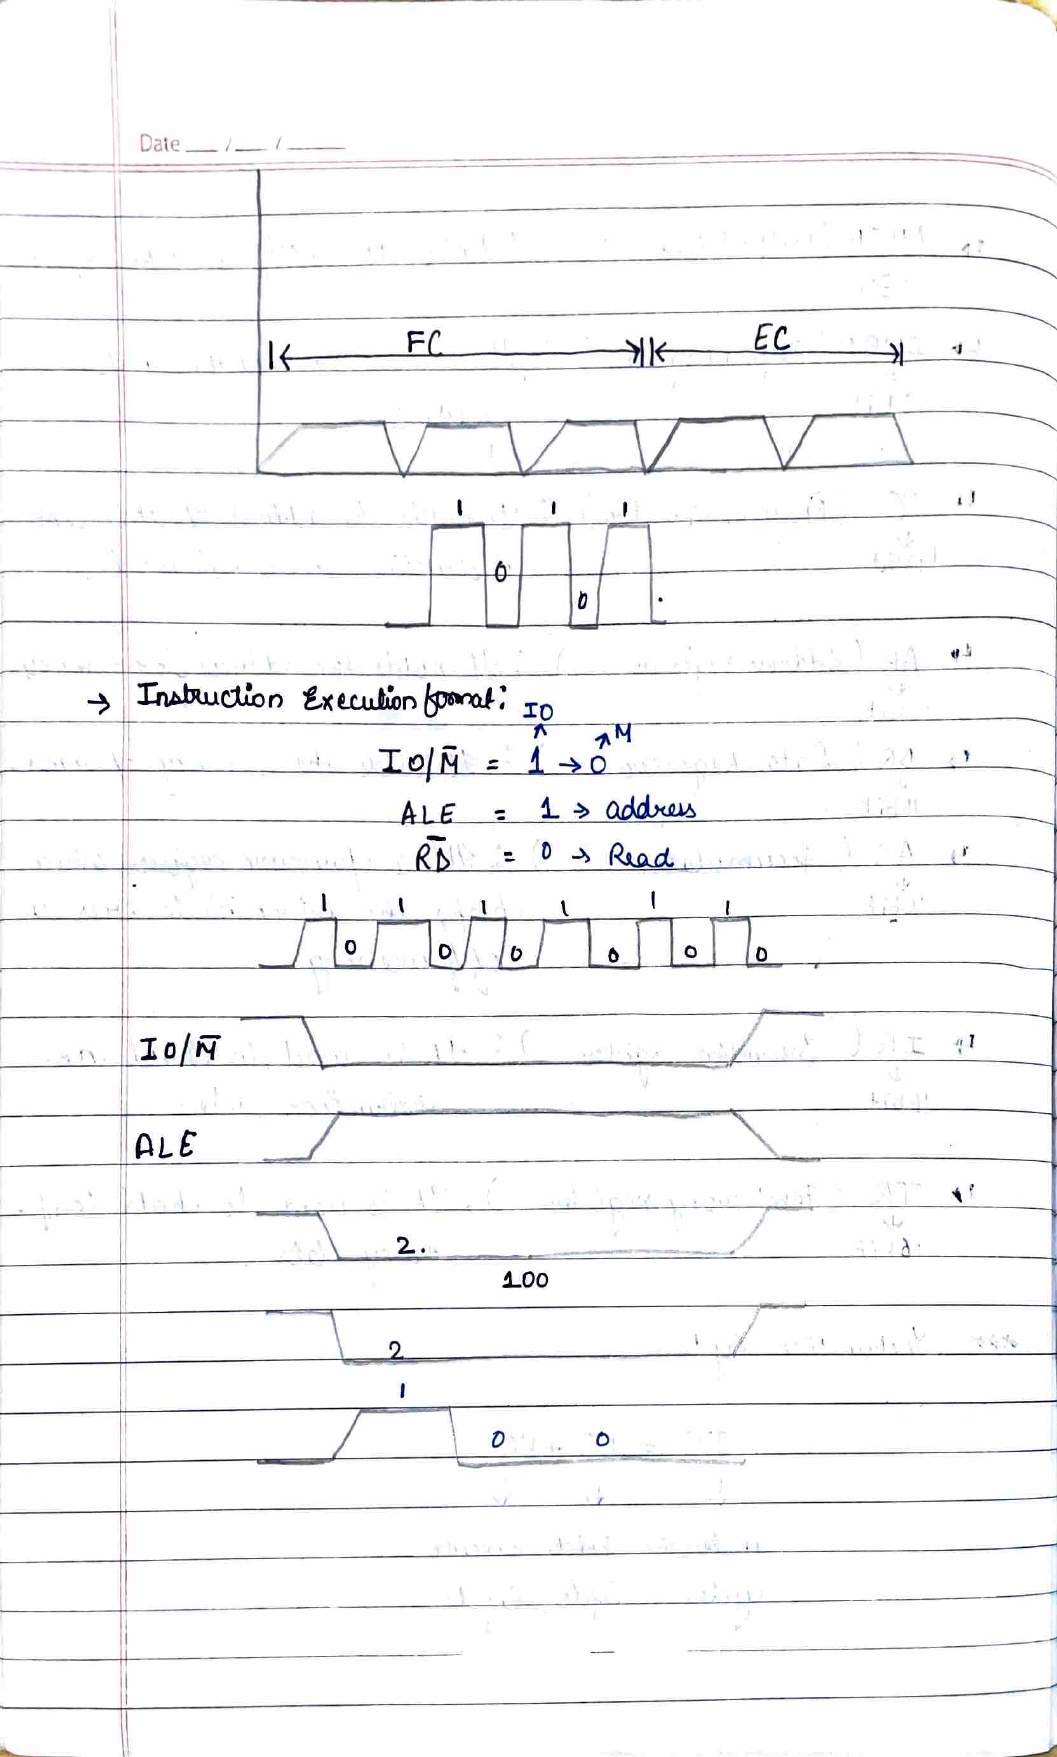 Date __ /__ /____
FC EC
1 1 1
0
0
→ Instruction Execution format:
IO
M
IO/M̅ = 1 → 0
ALE = 1 → address
R̅D̅ = 0 → Read
1 1 1 1 1 1
0 0 0 0 0 0
IO/M̅
ALE
2.
100
2
1
0 0